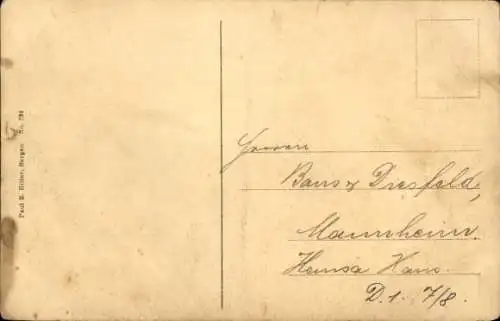 Paul E. Ritter, Bergen. No. 294
Herren
Bansz Diesfeld,
Mannheim.
Hansa Haus.
D. 1. 7/8.